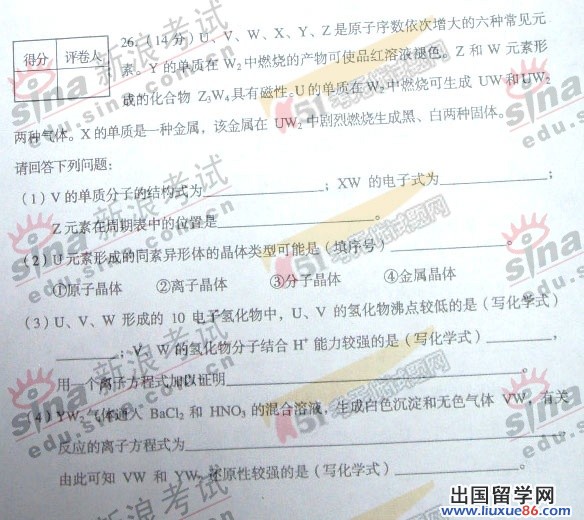 得分 评卷人
26.（14 分）U、V、W、X、Y、Z 是原子序数依次增大的六种常见元
素。Y 的单质在 W₂ 中燃烧的产物可使品红溶液褪色。Z 和 W 元素形
成的化合物 Z₃W₄ 具有磁性。U 的单质在 W₂ 中燃烧可生成 UW 和 UW₂
两种气体。X 的单质是一种金属，该金属在 UW₂ 中剧烈燃烧生成黑、白两种固体。
请回答下列问题：
（1）V 的单质分子的结构式为＿＿＿＿＿＿；XW 的电子式为＿＿＿＿＿＿；
Z 元素在周期表中的位置是＿＿＿＿＿＿。
（2）U 元素形成的同素异形体的晶体类型可能是（填序号）＿＿＿＿＿＿。
①原子晶体 ②离子晶体 ③分子晶体 ④金属晶体
（3）U、V、W 形成的 10 电子氢化物中，U、V 的氢化物沸点较低的是（写化学式）
＿＿＿＿；V、W 的氢化物分子结合 H⁺ 能力较强的是（写化学式）＿＿＿＿，
用一个离子方程式加以证明＿＿＿＿＿＿。
（4）YW₂ 气体通入 BaCl₂ 和 HNO₃ 的混合溶液，生成白色沉淀和无色气体 VW，有关
反应的离子方程式为＿＿＿＿＿＿，
由此可知 VW 和 YW₂ 还原性较强的是（写化学式）＿＿＿＿。
sina 新浪考试
edu.sina.com.cn
51 考试题网
出国留学网
www.liuxue86.com